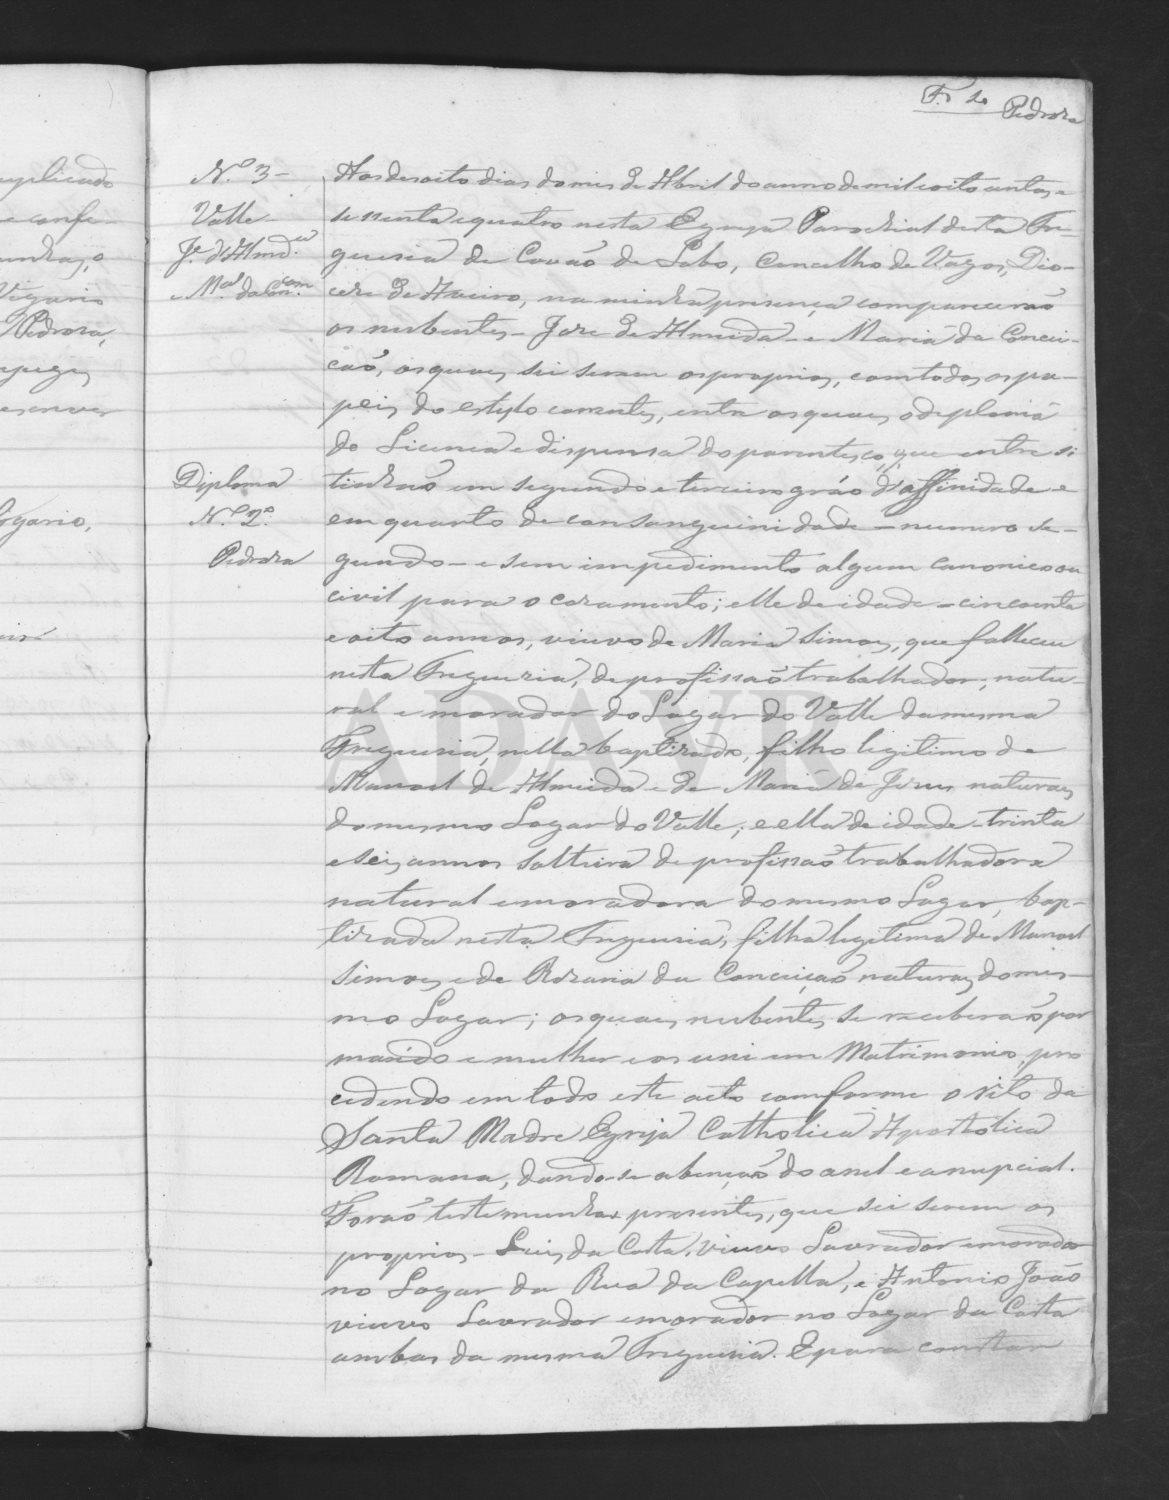 F. 2 Pedroza
N.º 3 -
Valle
J.e d'Almd.ª
e M.ª da Con.cam
Diploma
N.º 2º
Pedroza
Aos desoito dias do mes de Abril do anno de mil oito centos e
sessenta e quatro nesta Egreja Parochial desta Fre-
guesia de Covão de Lobo, Concelho de Vagos, Dio-
cese de Aveiro, na minha presença comparecerão
os nubentes - Jose de Almeida - e Maria da Concei-
ção, os quaes sei serem os proprios, com todos os pa-
peis do estylo correntes, entre os quaes o deploma
de Licença e dispensa do parentesco, que entre si
tinhão em segundo e terceiro gráo d'affinidade e
em quarto de consanguinidade - numero se-
gundo - e sem impedimento algum canonico ou
civil para o casamento; elle de idade - cincoenta
e oito annos, viuvo de Maria Simões, que falleceu
nesta Freguezia, de profissão trabalhador, natu-
ral e morador do Lugar do Valle da mesma
Freguesia, nella baptizado, filho legitimo de
Manoel de Almeida e de Maria de Jesus naturaes
do mesmo Lugar do Valle; e ella de idade - trinta
e seis annos solteira de profissão trabalhadora
natural e moradora do mesmo Lugar, bap-
tizada nesta Freguesia, filha legitima de Manoel
Simões e de Rozaria da Conceição naturaes do mes-
mo Lugar; os quaes nubentes se receberão por
marido e mulher e os uni em Matrimonio, pro
cedendo em todo este acto comforme o rito da
Santa Madre Egreja Catholica Apostolica
Romana, dando-se a benção do anel e a nupcial.
Forão testemunhas presentes, que sei serem os
proprios - Luis da Costa, viuvo Lavrador e morador
no Lugar da Rua da Capella, e Antonio João
viuvo Lavrador e morador no Lugar da Costa
ambos da mesma Freguesia. E para constar
uplicado
e confe-
unhas, o
Vigario
Pedroza,
ogario,
ADAVR